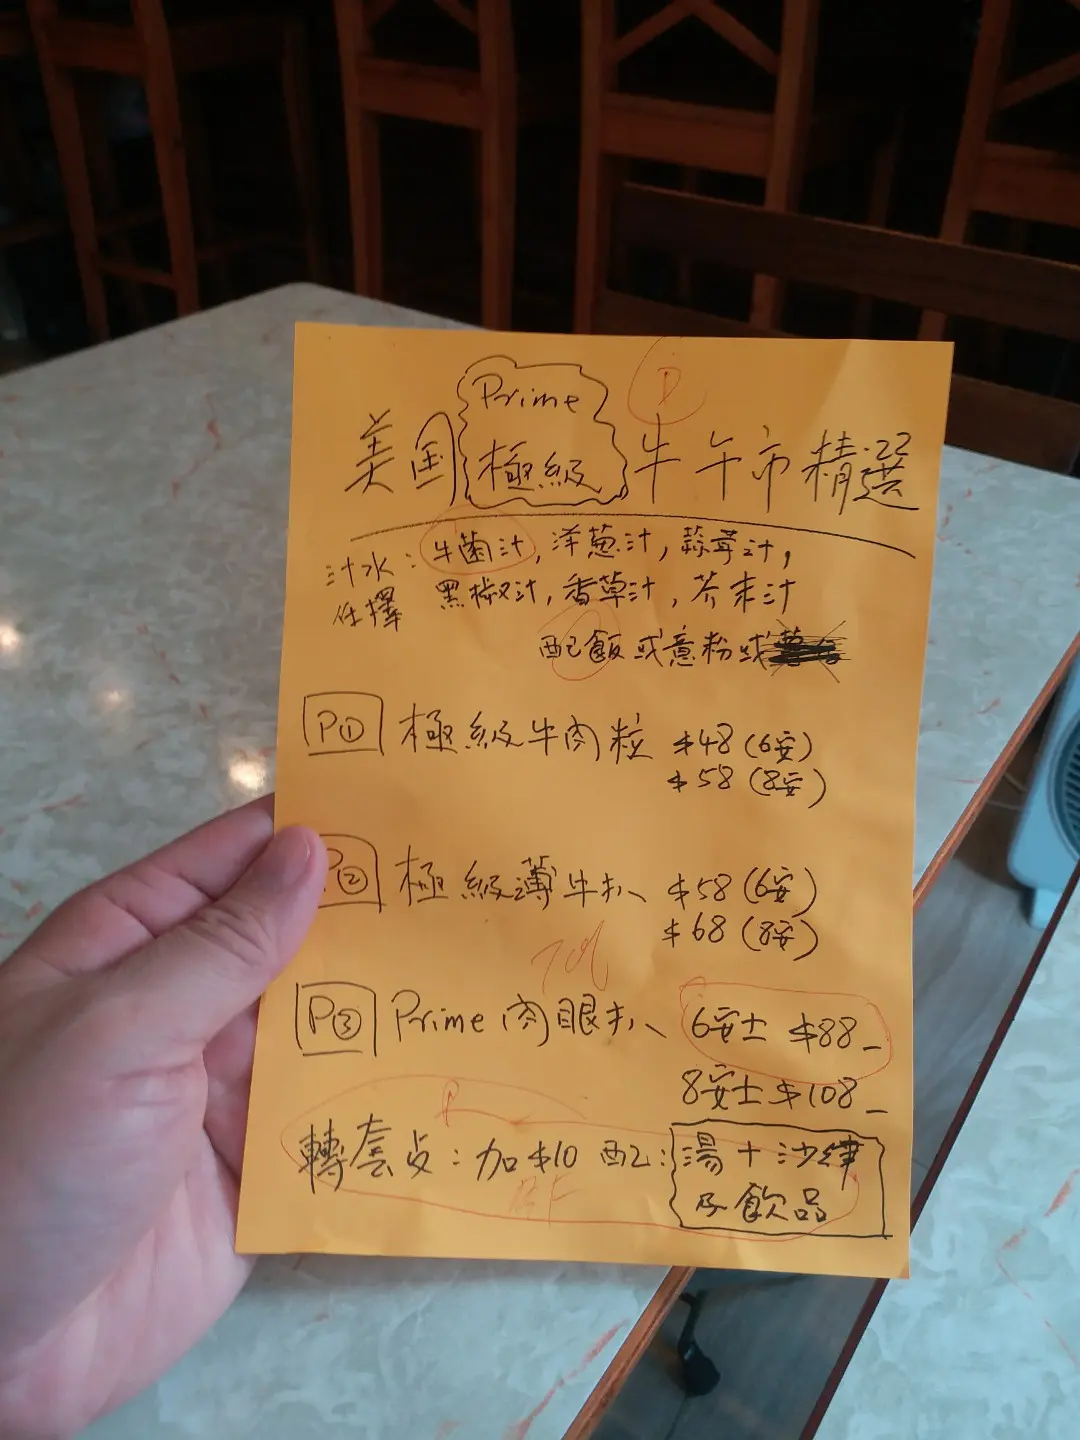 Prime
美国極級牛午市精選
汁水：牛菌汁，洋葱汁，蒜茸汁，
任擇 黑椒汁，香草汁，芥末汁
配飯或意粉或
P① 極級牛肉粒 $48 (6安)
$58 (8安)
P② 極級薄牛扒 $58 (6安)
$68 (8安)
P③ Prime 肉眼扒 6安士 $88_
8安士 $108_
轉套歺：加$10 配：湯+沙律
及飲品